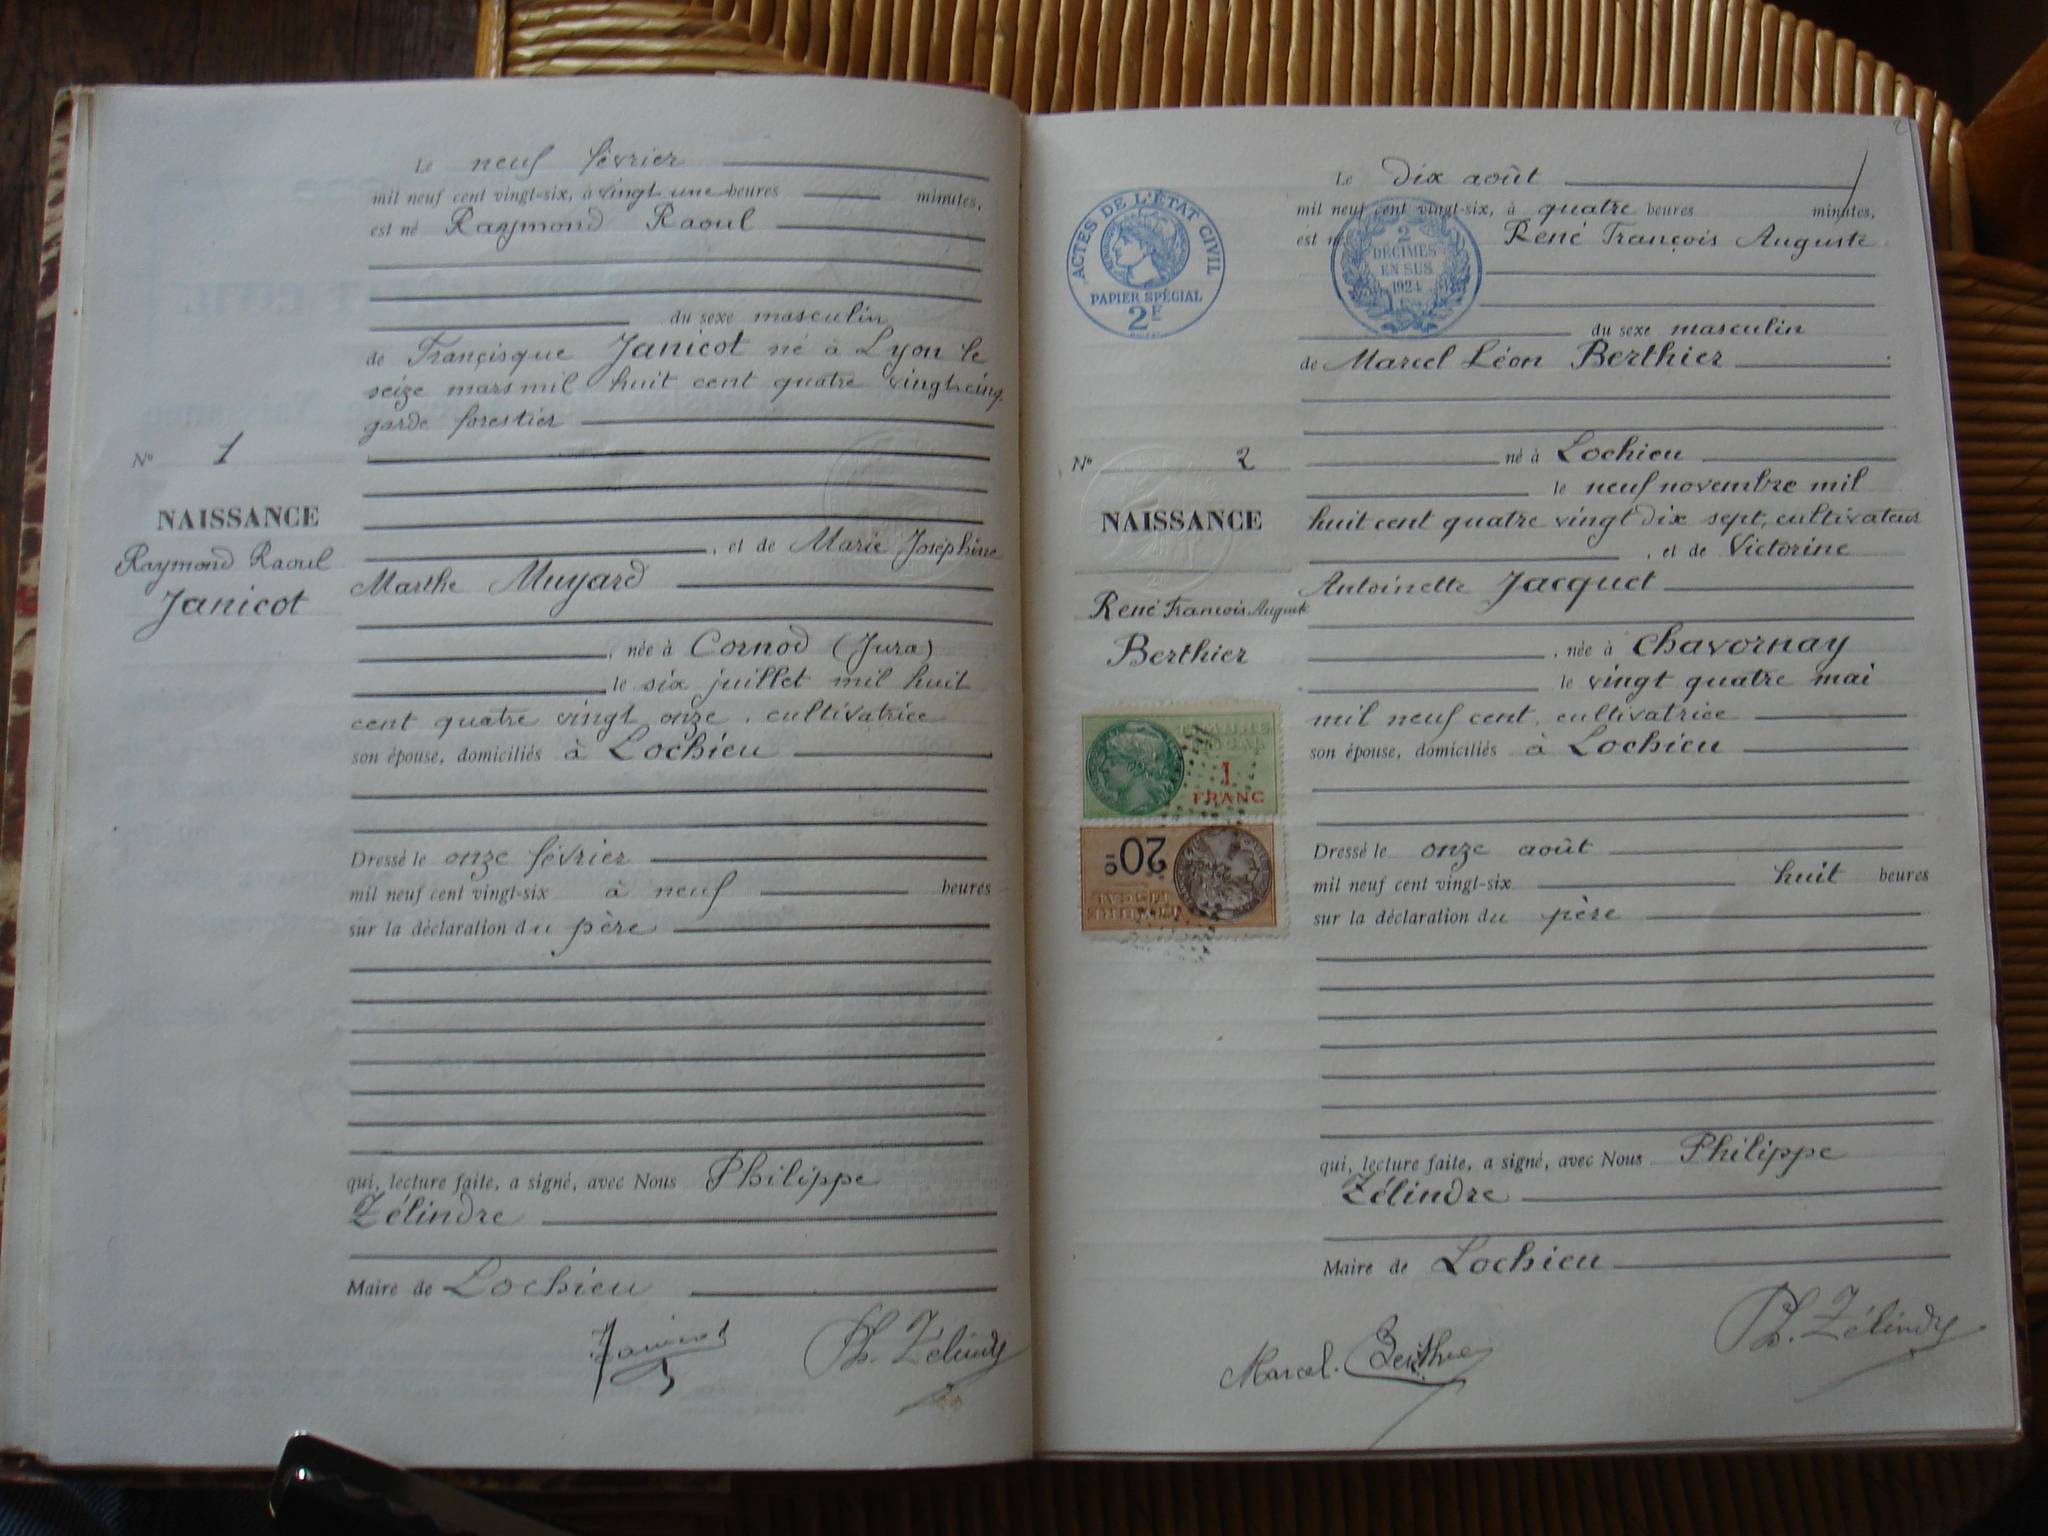 Le neuf février
mil neuf cent vingt-six, à vingt une heures minutes,
est né Raymond Raoul
du sexe masculin
de Françisque Janicot né à Lyon le
seize mars mil huit cent quatre vingt cinq
garde forestier
N° 1
NAISSANCE
Raymond Raoul
Janicot
, et de Marie Joséphine
Marthe Muyard
, née à Cornod (Jura)
le six juillet mil huit
cent quatre vingt onze, cultivatrice
son épouse, domiciliés à Lochieu
Dressé le onze février
mil neuf cent vingt-six à neuf heures
sur la déclaration du père
qui, lecture faite, a signé, avec Nous Philippe
Zélindre
Maire de Lochieu
Janicot
Ph. Zélindre
2
ACTES DE L'ÉTAT CIVIL
PAPIER SPÉCIAL
2F
2
DÉCIMES
EN SUS
1924
Le dix août
mil neuf cent vingt-six, à quatre heures minutes,
est né René François Auguste
du sexe masculin
de Marcel Léon Berthier
né à Lochieu
le neuf novembre mil
huit cent quatre vingt dix sept, cultivateur
N° 2
NAISSANCE
René François Auguste
Berthier
, et de Victorine
Antoinette Jacquet
, née à Chavornay
le vingt quatre mai
mil neuf cent, cultivatrice
son épouse, domiciliés à Lochieu
1
FRANC
20c
TIMBRE
FISCAL
Dressé le onze août
mil neuf cent vingt-six huit heures
sur la déclaration du père
qui, lecture faite, a signé, avec Nous Philippe
Zélindre
Maire de Lochieu
Marcel. Berthier
Ph. Zélindre